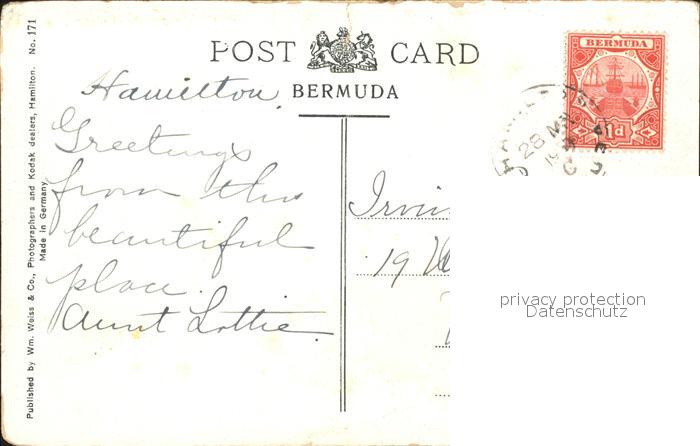 POST CARD
BERMUDA
Hamilton.
Greetings
from this
beautiful
place.
Aunt Lottie.
Published by Wm. Weiss & Co., Photographers and Kodak dealers, Hamilton. No. 171
Made in Germany
BERMUDA
1d
28 M
19
privacy protection
Datenschutz